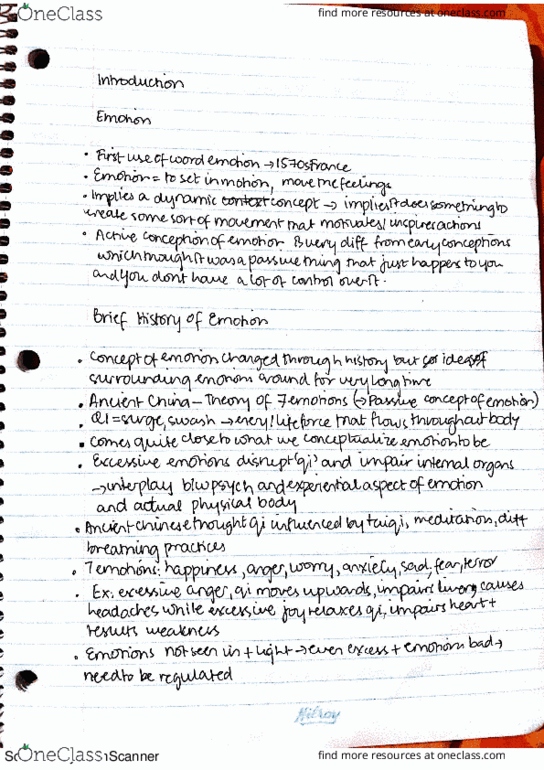 OneClass find more resources at oneclass.com
Introduction
Emotion
• First use of word emotion → 1570s France
• Emotion = to set in motion, move the feelings
• Implies a dynamic context concept → implies it does something to
create some sort of movement that motivates/inspires actions
• Active conception of emotion is very diff from early conceptions
which thought it was a passive thing that just happens to you
and you don't have a lot of control over it.
Brief History of Emotion
• Concept of emotion changed through history but ideas of
surrounding emotion around for very long time
• Ancient China - Theory of 7 emotions (→ Passive concept of emotion)
• QI = surge, swash → energy/life force that flows throughout body
• Comes quite close to what we conceptualize emotion to be
• Excessive emotions disrupt 'qi' and impair internal organs
→ interplay b/w psych and experiential aspect of emotion
and actual physical body
• Ancient chinese thought qi influenced by taiqi, meditation, diff
breathing practices
• 7 emotions: happiness, anger, worry, anxiety, sad, fear, terror
• Ex. excessive anger, qi moves upwards, impairs liver, causes
headaches, while excessive joy relaxes qi, impairs heart +
results weakness
• Emotions not seen in + light → even excess + emotions bad →
need to be regulated
Hilroy
OneClass Scanner find more resources at oneclass.com